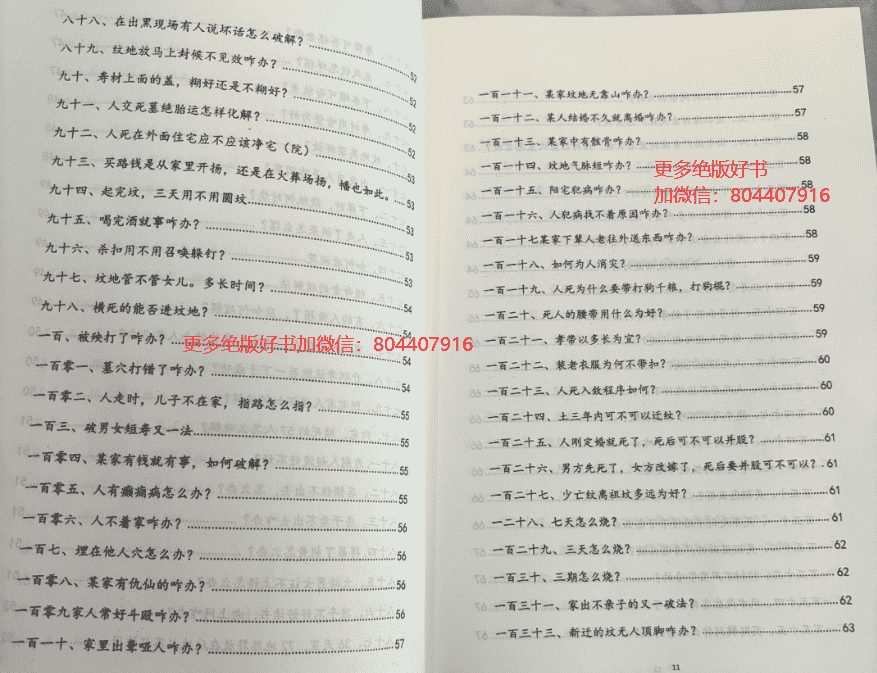 八十八、在出黑现场有人说坏话怎么破解？……52
八十九、纹地放马上封候不见效咋办？……52
九十、寿材上面的盖，糊好还是不糊好？……52
九十一、人交死墓绝胎运怎样化解？……52
九十二、人死在外面住宅应不应该净宅（院）……52
九十三、买路钱是从家里开扬，还是在火葬场扬，幡也如此。…53
九十四、起完坟，三天用不用圆坟……53
九十五、喝完酒就事咋办？……53
九十六、杀扣用不用召唤躲钉？……53
九十七、坟地管不管女儿。多长时间？……53
九十八、横死的能否进坟地？……54
一百、被殃打了咋办？……54
一百零一、墓穴打错了咋办？……54
一百零二、人走时，儿子不在家，指路怎么指？……55
一百三、破男女短寿又一法……55
一百零四、某家有钱就有事，如何破解？……55
一百零五、人有癫痫病怎么办？……55
一百零六、人不着家咋办？……56
一百七、埋在他人穴怎么办？……56
一百零八、某家有仇仙的咋办？……56
一百零九家人常好斗殴咋办？……56
一百一十、家里出聋哑人咋办？……57
更多绝版好书加微信：804407916
一百一十一、某家坟地无靠山咋办？……57
一百一十二、某人结婚不久就离婚咋办？……57
一百一十三、某家中有骸骨咋办？……58
一百一十四、坟地气脉短咋办？……58
一百一十五、阳宅犯病咋办？……58
一百一十六、人犯病找不着原因咋办？……58
一百一十七某家下辈人老往外送东西咋办？……58
一百一十八、如何为人消灾？……59
一百一十九、人死为什么要带打狗干粮，打狗棍？……59
一百二十、死人的腰带用什么为好？……59
一百二十一、孝带以多长为宜？……59
一百二十二、装老衣服为何不带扣？……60
一百二十三、人死入敛程序如何？……60
一百二十四、土三年内可不可以迁纹？……60
一百二十五、人刚定婚就死了，死后可不可以并股？……61
一百二十六、男方先死了，女方改嫁了，死后要并股可不可以？.61
一百二十七、少亡纹离祖坟多远为好？……61
一二十八、七天怎么烧？……61
一百二十九、三天怎么烧？……62
一百三十、三期怎么烧？……62
一百三十一、家出不亲子的又一破法？……62
一百三十三、新迁的坟无人顶脚咋办？……63
更多绝版好书
加微信：804407916
11